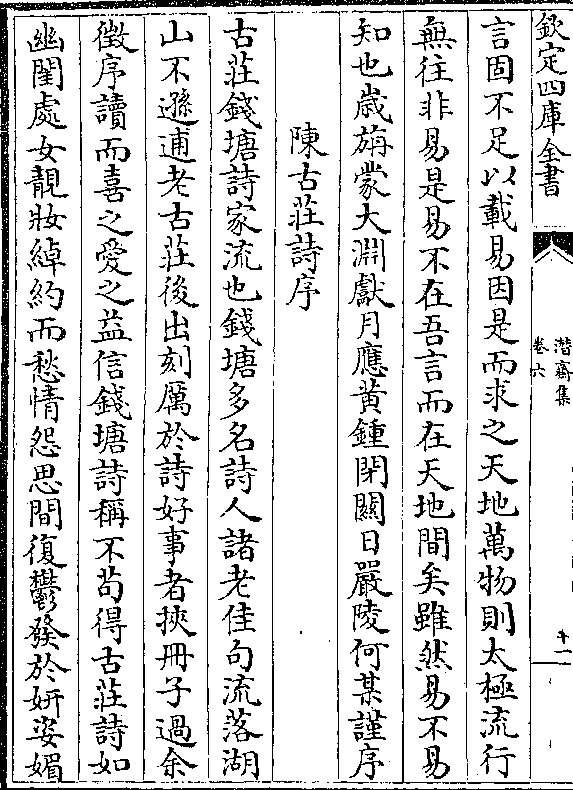 欽定四庫全書
潛齋集
卷六
十一
言固不足以載易因是而求之天地萬物則太極流行
無往非易是易不在吾言而在天地間矣雖然易不易
知也歲旃蒙大淵獻月應黃鍾閉關日嚴陵何某謹序
陳古莊詩序
古莊錢塘詩家流也錢塘多名詩人諸老佳句流落湖
山不遜逋老古莊後出刻厲於詩好事者挾冊子過余
徵序讀而喜之愛之益信錢塘詩稱不苟得古莊詩如
幽閨處女靚妝綽約而愁情怨思間復鬱發於妍姿媚